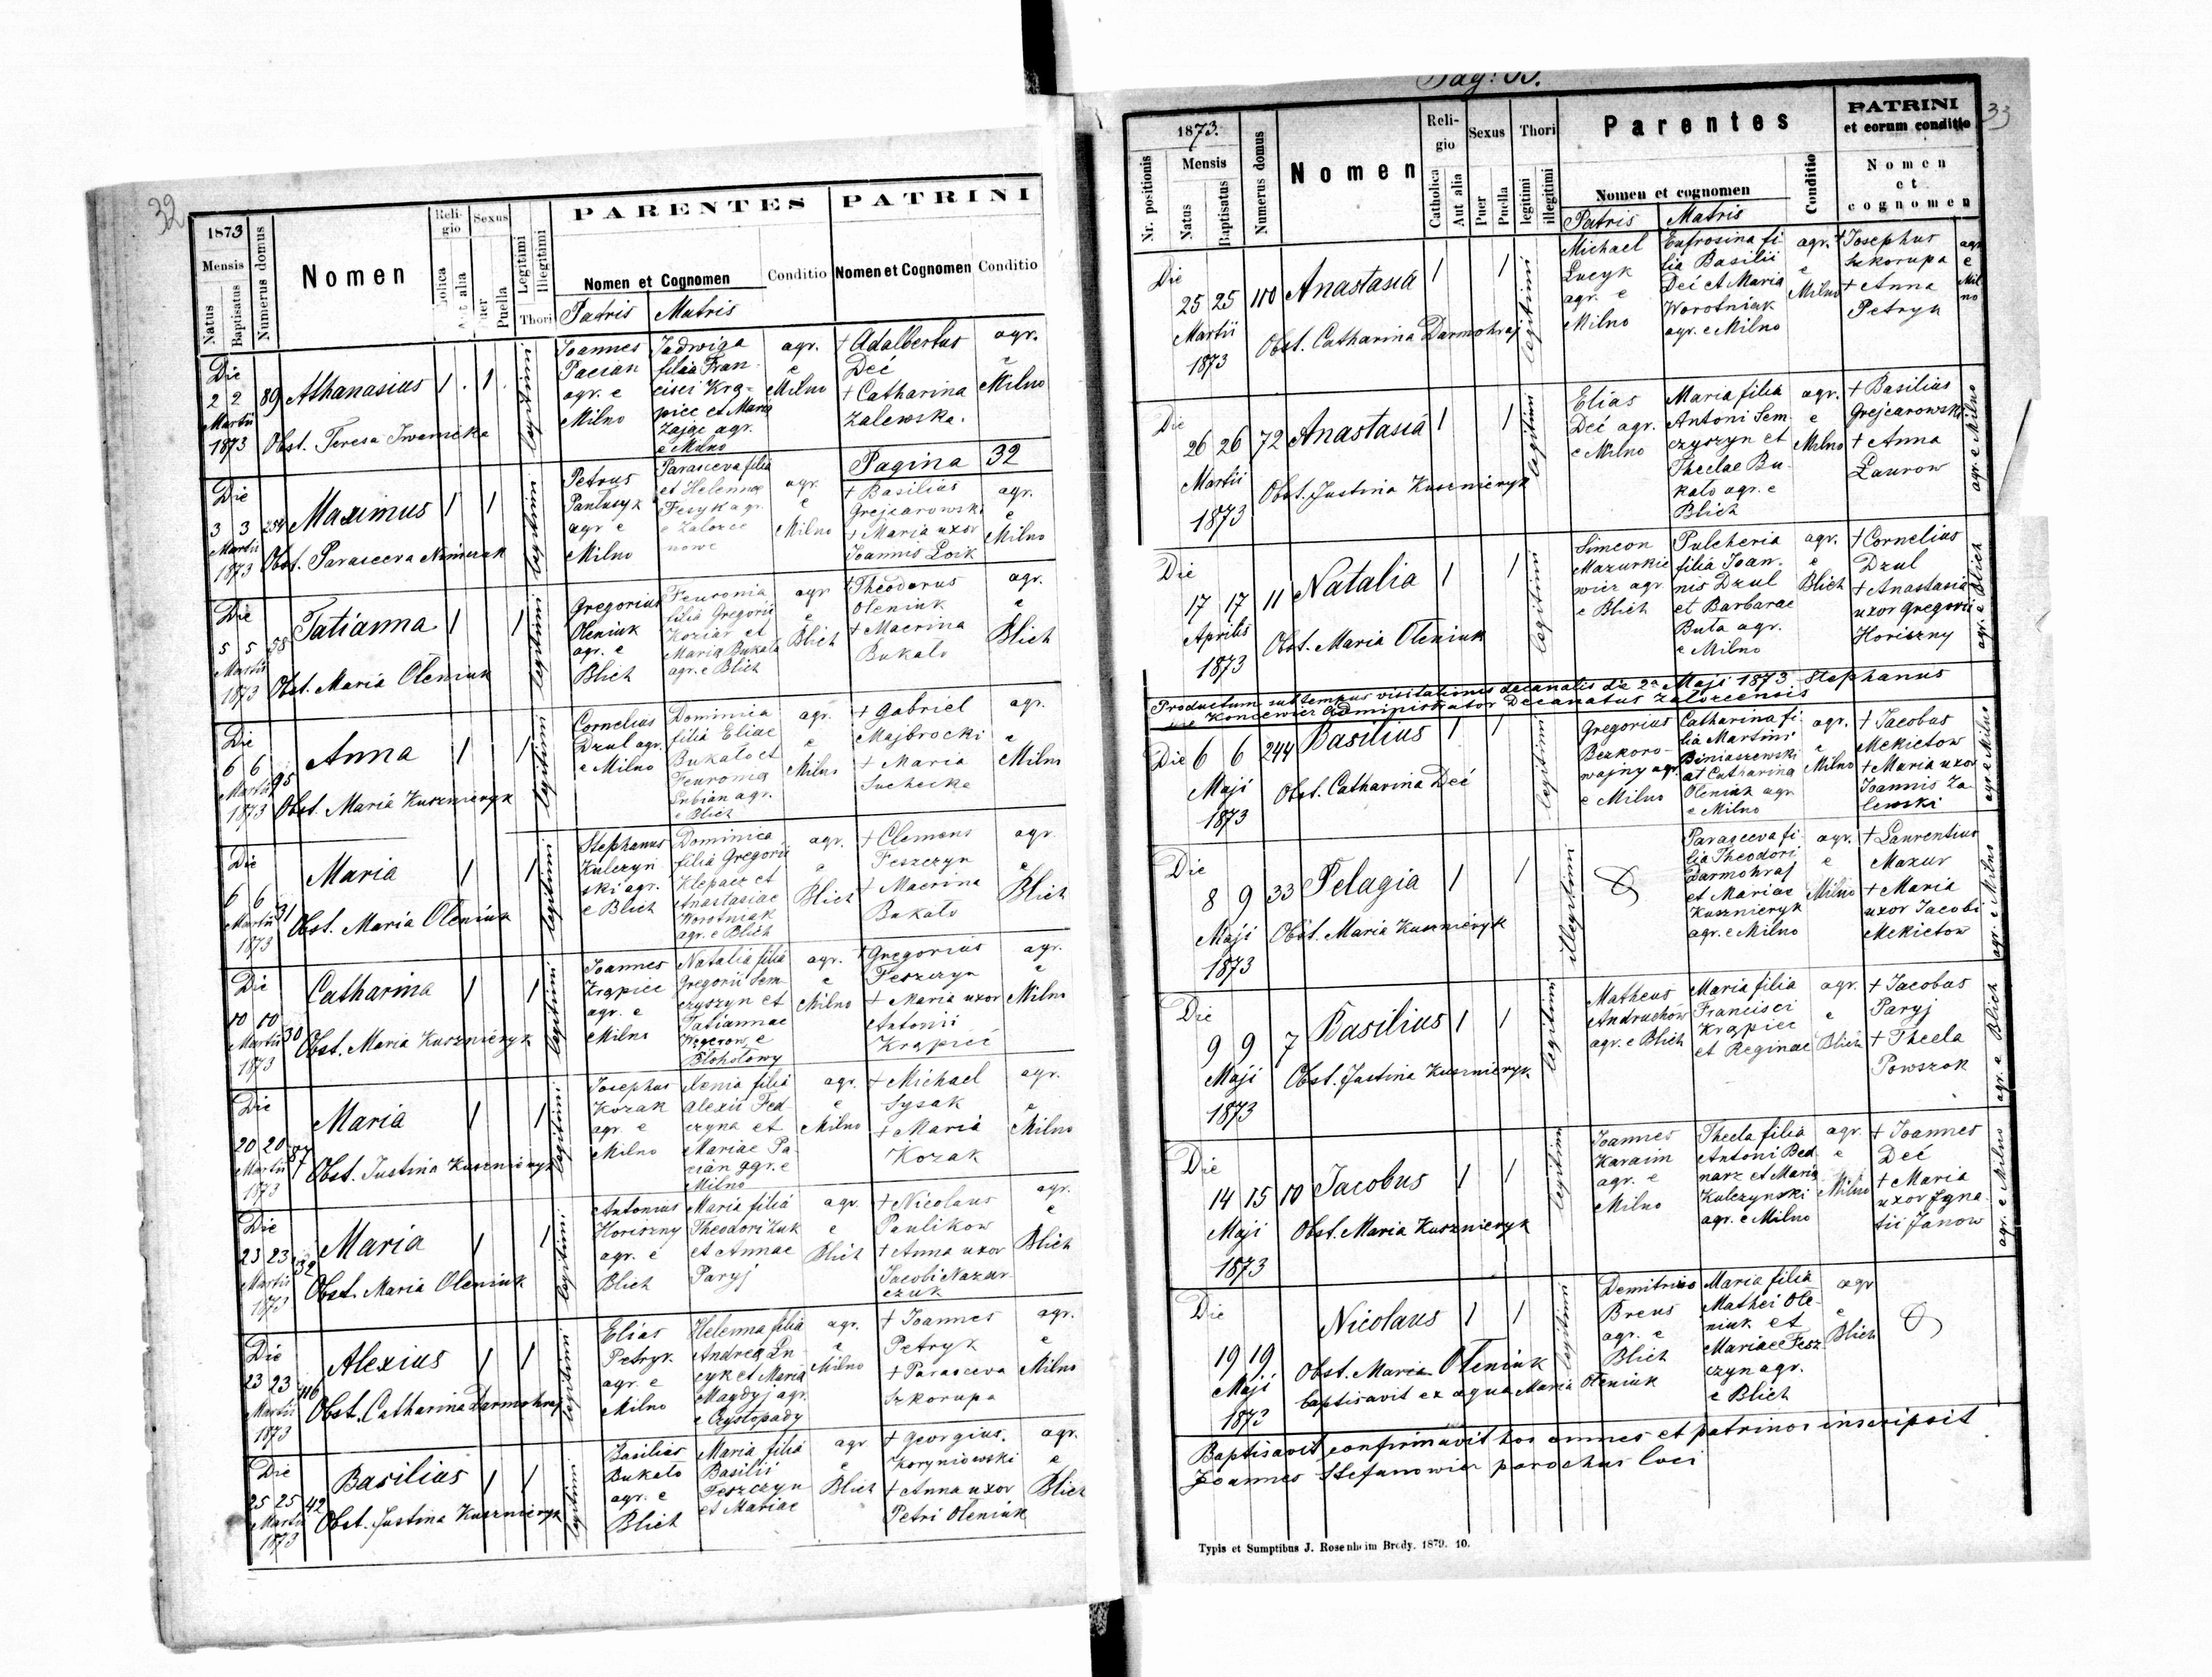 32
1873
Mensis
Natus
Baptisatus
Numerus domus
Nomen
Religio
Aut alia
Sexus
Puella
Legitimi
Illegitimi
Thori
PARENTES
Nomen et Cognomen
Patris Matris
Conditio
PATRINI
Nomen et Cognomen
Conditio
Die
2 2
Martii
1873
89
Athanasius
1 1
Obst. Teresa Iwanicka
legitimi
Joannes
Pacian
agr. e
Milno
Jadwiga
filia Fran-
cisci Krą-
picc et Maria
Zając agr.
e Milno
agr.
e
Milno
† Adalbertus
Deć
† Catharina
Zalewska.
agr.
e
Milno
Pagina 32
Die
3 3
Martii
1873
254
Maximus
1 1
Obst. Parasceva
legitimi
Petrus
Pantusyk
agr e
Milno
Parasceva filia
et Helennae
Fesyk agr.
e Zalozce
nowe
agr.
e
Milno
† Basilius
Grejcarowski
† Maria uxor
Joannis Loik
agr.
e
Milno
Die
5 5
Martii
1873
58
Tatianna
1 1
Obst. Maria Oleniuk
legitimi
Gregorius
Oleniuk
agr. e
Blich
Feuronia
filia Gregorii
Koziar et
Maria Bukato
agr. e Blich
agr
e
Blich
† Theodorus
Oleniuk
† Macrina
Bukato
agr.
e
Blich
Die
6 6
Martii
1873
95
Anna
1 1
Obst. Maria Kusznieryk
legitimi
Cornelius
Dzul agr.
e Milno
Dominica
filia Eliae
Bukato et
Feuronia
Lubian agr.
e Blich
agr.
e
Milno
† Gabriel
Majbrocki
† Maria
Suchecka
agr.
e
Milno
Die
6 6
Martii
1873
31
Maria
1 1
Obst. Maria Oleniuk
legitimi
Stephanus
Kulczyn
ski agr.
e Blich
Dominica
filia Gregorii
Klepacz et
Anastasiae
Worotniak
agr. e Blich
agr.
e
Blich
† Clemens
Feszczyn
† Macrina
Bukato
agr.
e
Blich
Die
10 10
Martii
1873
30
Catharina
1 1
Obst. Maria Kusznieryk
legitimi
Joannes
Krąpiec
agr. e
Milno
Natalia filia
Gregorii Sem-
czyszyn et
Tatiannae
Węgerow e
Blohslowy
agr.
e
Milno
† Gregorius
Feszczyn
† Maria uxor
Antonii
Krąpiec
agr.
e
Milno
Die
20 20
Martii
1873
87
Maria
1 1
Obst. Justina Kusznieryk
legitimi
Josephus
Kozak
agr. e
Milno
Xenia filia
Alexii Fed-
czyna et
Mariae Pa-
cian agr. e
Milno
agr.
e
Milno
† Michael
Sysak
† Maria
Kozak
agr.
e
Milno
Die
23 23
Martii
1873
32
Maria
1 1
Obst. Maria Oleniuk
legitimi
Antonius
Horiszny
agr. e
Blich
Maria filia
Theodori Zuk
et Annae
Paryj
agr.
e
Blich
† Nicolaus
Paulikow
† Anna uxor
Jacobi Nazar-
czuk
agr.
e
Blich
Die
23 23
Martii
1873
116
Alexius
1 1
Obst. Catharina Darmohraj
legitimi
Elias
Petryk
agr. e
Milno
Helenna filia
Andrea Lu-
cyk et Maria
Magdyj agr.
e Czystopady
agr.
e
Milno
† Joannes
Petryk
† Parasceva
Szkorupa
agr.
e
Milno
Die
25 25
Martii
1873
42
Basilius
1 1
Obst. Justina Kusznieryk
legitimi
Basilius
Bukato
agr. e
Blich
Maria filia
Basilii
Feszczyn
et Mariae
agr
e
Blich
† Georgius.
Koryniowski
† Anna uxor
Petri Oleniuk
agr.
e
Blich
Pag: 33.
33
1873.
Nr. positionis
Mensis
Natus
Baptisatus
Numerus domus
Nomen
Religio
Catholica
Aut alia
Sexus
Puer
Puella
Thori
legitimi
illegitimi
Parentes
Nomen et cognomen
Patris Matris
Conditio
PATRINI
et eorum conditio
Nomen
et
cognomen
Die
25 25
Martii
1873
110
Anastasia
1 1
Obst. Catharina Darmohraj
legitimi
Michael
Lucyk
agr. e
Milno
Eufrosina fi-
lia Basilii
Deć et Maria
Worotniak
agr. e Milno
agr.
e
Milno
† Josephus
Szkorupa
† Anna
Petryk
agr
e
Mil
no
Die
26 26
Martii
1873
72
Anastasia
1 1
Obst. Justina Kusznieryk
legitimi
Elias
Deć agr.
e Milno
Maria filia
Antoni Sem-
czyszyn et
Theclae Bu-
kato agr. e
Blich
agr.
e
Milno
† Basilius
Grejcarowski
† Anna
Laurow
agr. e Milno
Die
17 17
Aprilis
1873
11
Natalia
1 1
Obst. Maria Oleniuk
legitimi
Simeon
Mazurkie
wicz agr.
e Blich
Pulcheria
filia Joan-
nis Dzul
et Barbarae
Buta agr.
e Milno
agr.
e
Blich
† Cornelius
Dzul
† Anastasia
uxor Gregorii
Horiszny
agr. e Blich
Productum sub tempus visitationis decanalis die 2a Maji 1873 Stephanus
Koncewicz Administrator Decanatus Zalozcensis
Die 6 6
Maji
1873
244
Basilius
1 1
Obst. Catharina Deć
legitimi
Gregorius
Bezkoro-
wajny agr.
e Milno
Catharina fi-
lia Martini
Biniaszewski
et Catharina
Oleniuk agr
e Milno
agr.
e
Milno
† Jacobus
Mekietow
† Maria uxor
Joannis Za-
lewski
agr e Milno
Die
8 9
Maji
1873
33
Pelagia
1 1
Obst. Maria Kusznieryk
illegitimi
Parasceva fi-
lia Theodori
Darmohraj
et Mariae
Kusznieryk
agr. e Milno
agr.
e
Milno
† Laurentius
Mazur
† Maria
uxor Jacobi
Mekietow
agr. e Milno
Die
9 9
Maji
1873
7
Basilius
1 1
Obst. Justina Kusznieryk
legitimi
Matheus
Andruchow
agr. e Blich
Maria filia
Francisci
Krąpiec
et Reginae
agr.
e
Blich
† Jacobus
Paryj
† Thecla
Powszok
agr. e Blich
Die
14 15
Maji
1873
10
Jacobus
1 1
Obst. Maria Kusznieryk
legitimi
Joannes
Karaim
agr. e
Milno
Thecla filia
Antoni Bed-
narz et Maria
Kulczynski
agr. e Milno
agr.
e
Milno
† Joannes
Deć
† Maria
uxor Igna-
tii Janow
agr. e Milno
Die
19 19
Maji
1873
Nicolaus
1 1
Obst. Maria Oleniuk
baptisavit ex aqua Maria Oleniuk
legitimi
Demitrius
Breus
agr. e
Blich
Maria filia
Mathei Ole-
niuk et
Mariae Fesz
czyn agr.
e Blich
agr
e
Blich
Baptisavit, confirmavit hos omnes et patrinos inscripsit
Joannes Stefanowicz parochus loci
Typis et Sumptibus J. Rosenheim Brody. 1879. 10.